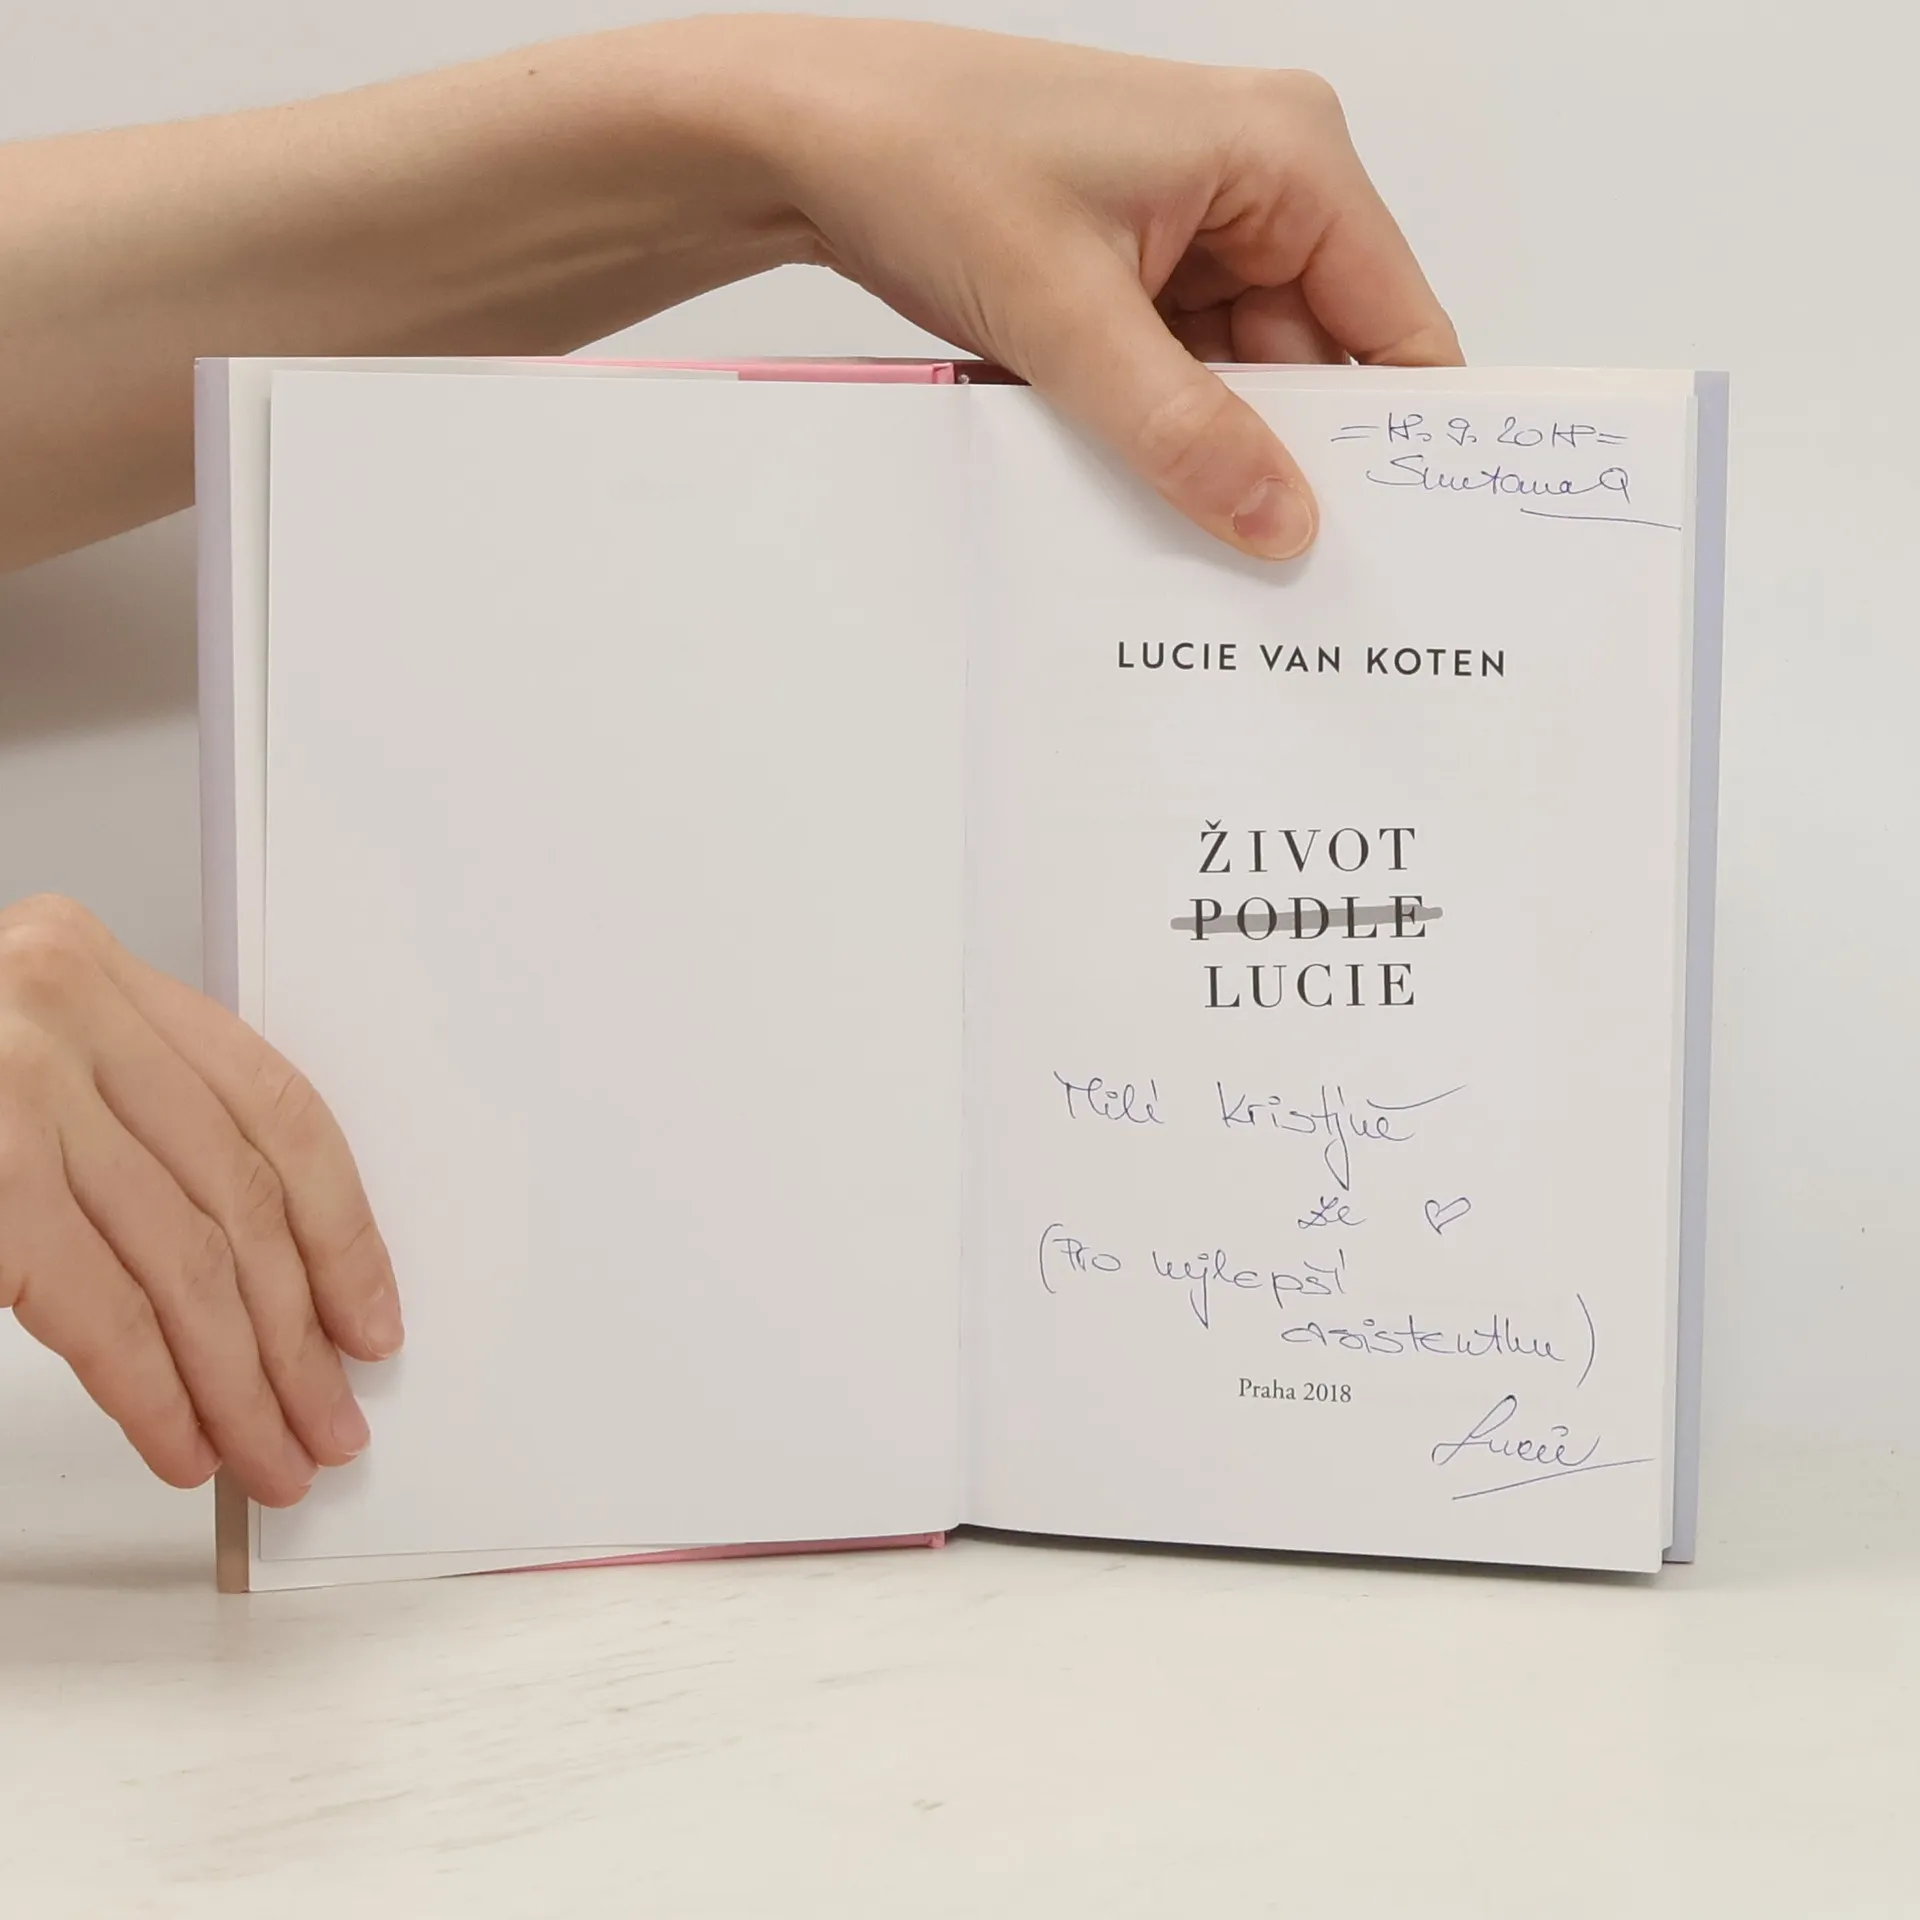 = 18. 9. 2018 =
SmetanaQ
LUCIE VAN KOTEN
ŽIVOT
PODLE
LUCIE
Milé Kristýně
ze ♡
(Pro nejlepší
asistentku)
Praha 2018
Lucie